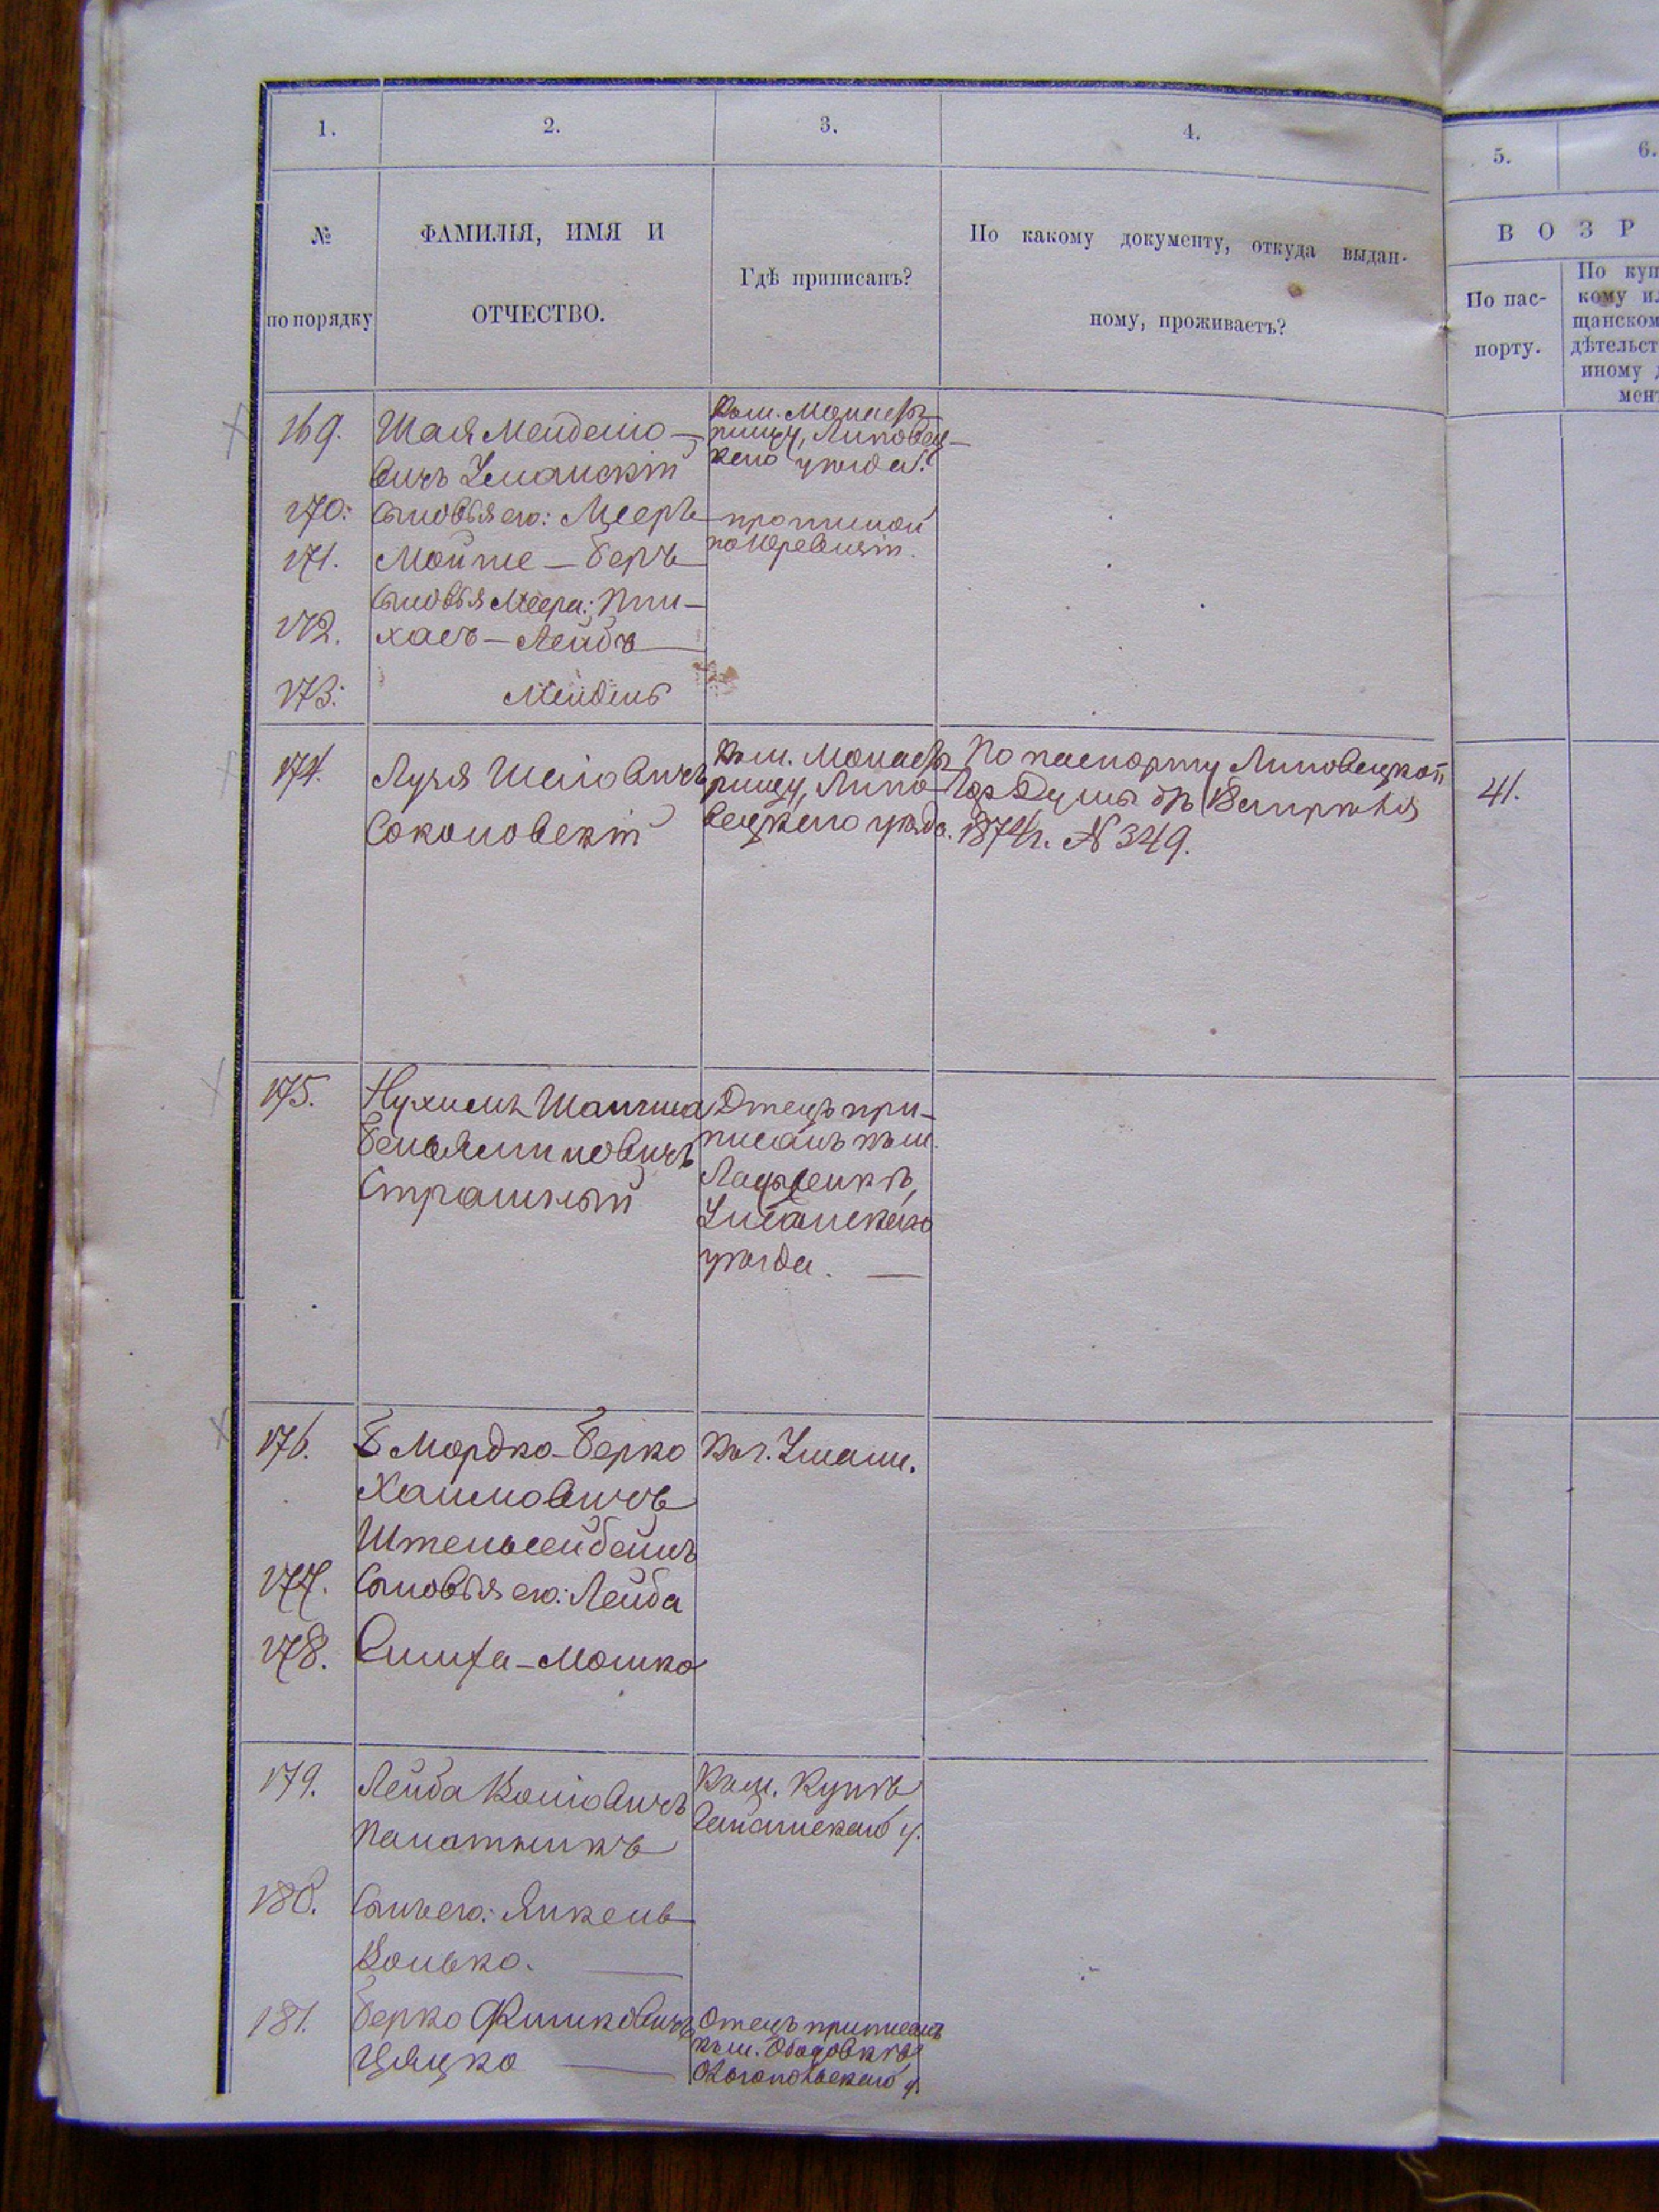 1.
2.
3.
4.
5.
6.
№
по порядку
ФАМИЛІЯ, ИМЯ И
ОТЧЕСТВО.
Гдѣ приписанъ?
По какому документу, откуда выдан-
ному, проживаетъ?
В О З Р
По пас-
порту.
По куп
кому ил
щанском
дѣтельст
иному д
мен
169. Шая Менделіо-
вичъ Уманскій
Къ м. Монасты-
рищу, Липовец-
каго уѣзда.
170. Сыновья его: Мееръ
171. Мойше-Беръ
прописной
по ревизіи.
Сыновья Меера: Пин-
172. хасъ-Лейбъ
173. Мендель
174. Лузя Шаіовичъ
Соколовскій
Къ м. Монасты-
рищу, Липо-
вецкаго уѣзда.
По паспорту Липовецкой
Гор. Думы отъ 18 апрѣля
1874 г. № 349.
41.
175. Нухимъ Шапшеа
Беньяминовичъ
Страшный
Отецъ при-
писанъ къ м.
Ладыженкѣ,
Уманскаго
уѣзда.
176. Мордко-Берко
Хаимовичъ
Штельсейбейнъ
Къ г. Умани.
177. Сыновья его: Лейба
178. Симха-Мошко
179. Лейба Коліовичъ
Палатникъ
Къ м. Купнѣ
Гайсинскаго у.
180. Сынъ его: Янкель
Колько.
181. Берко Фишковичъ
Цяцко
Отецъ приписанъ
къ м. Ободовкѣ
Ольгопольскаго у.